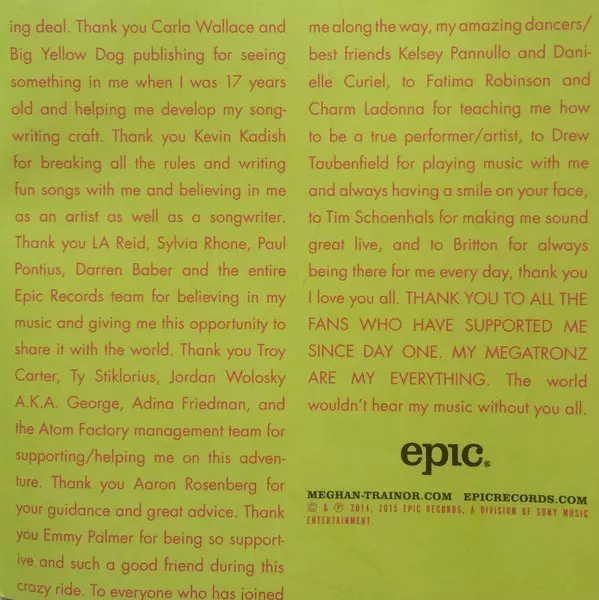 ing deal. Thank you Carla Wallace and
Big Yellow Dog publishing for seeing
something in me when I was 17 years
old and helping me develop my song-
writing craft. Thank you Kevin Kadish
for breaking all the rules and writing
fun songs with me and believing in me
as an artist as well as a songwriter.
Thank you LA Reid, Sylvia Rhone, Paul
Pontius, Darren Baber and the entire
Epic Records team for believing in my
music and giving me this opportunity to
share it with the world. Thank you Troy
Carter, Ty Stiklorius, Jordan Wolosky
A.K.A. George, Adina Friedman, and
the Atom Factory management team for
supporting/helping me on this adven-
ture. Thank you Aaron Rosenberg for
your guidance and great advice. Thank
you Emmy Palmer for being so support-
ive and such a good friend during this
crazy ride. To everyone who has joined
me along the way, my amazing dancers/
best friends Kelsey Pannullo and Dani-
elle Curiel, to Fatima Robinson and
Charm Ladonna for teaching me how
to be a true performer/artist, to Drew
Taubenfield for playing music with me
and always having a smile on your face,
to Tim Schoenhals for making me sound
great live, and to Britton for always
being there for me every day, thank you
I love you all. THANK YOU TO ALL THE
FANS WHO HAVE SUPPORTED ME
SINCE DAY ONE. MY MEGATRONZ
ARE MY EVERYTHING. The world
wouldn't hear my music without you all.
epic®
MEGHAN-TRAINOR.COM EPICRECORDS.COM
© & ℗ 2014, 2015 EPIC RECORDS, A DIVISION OF SONY MUSIC
ENTERTAINMENT.